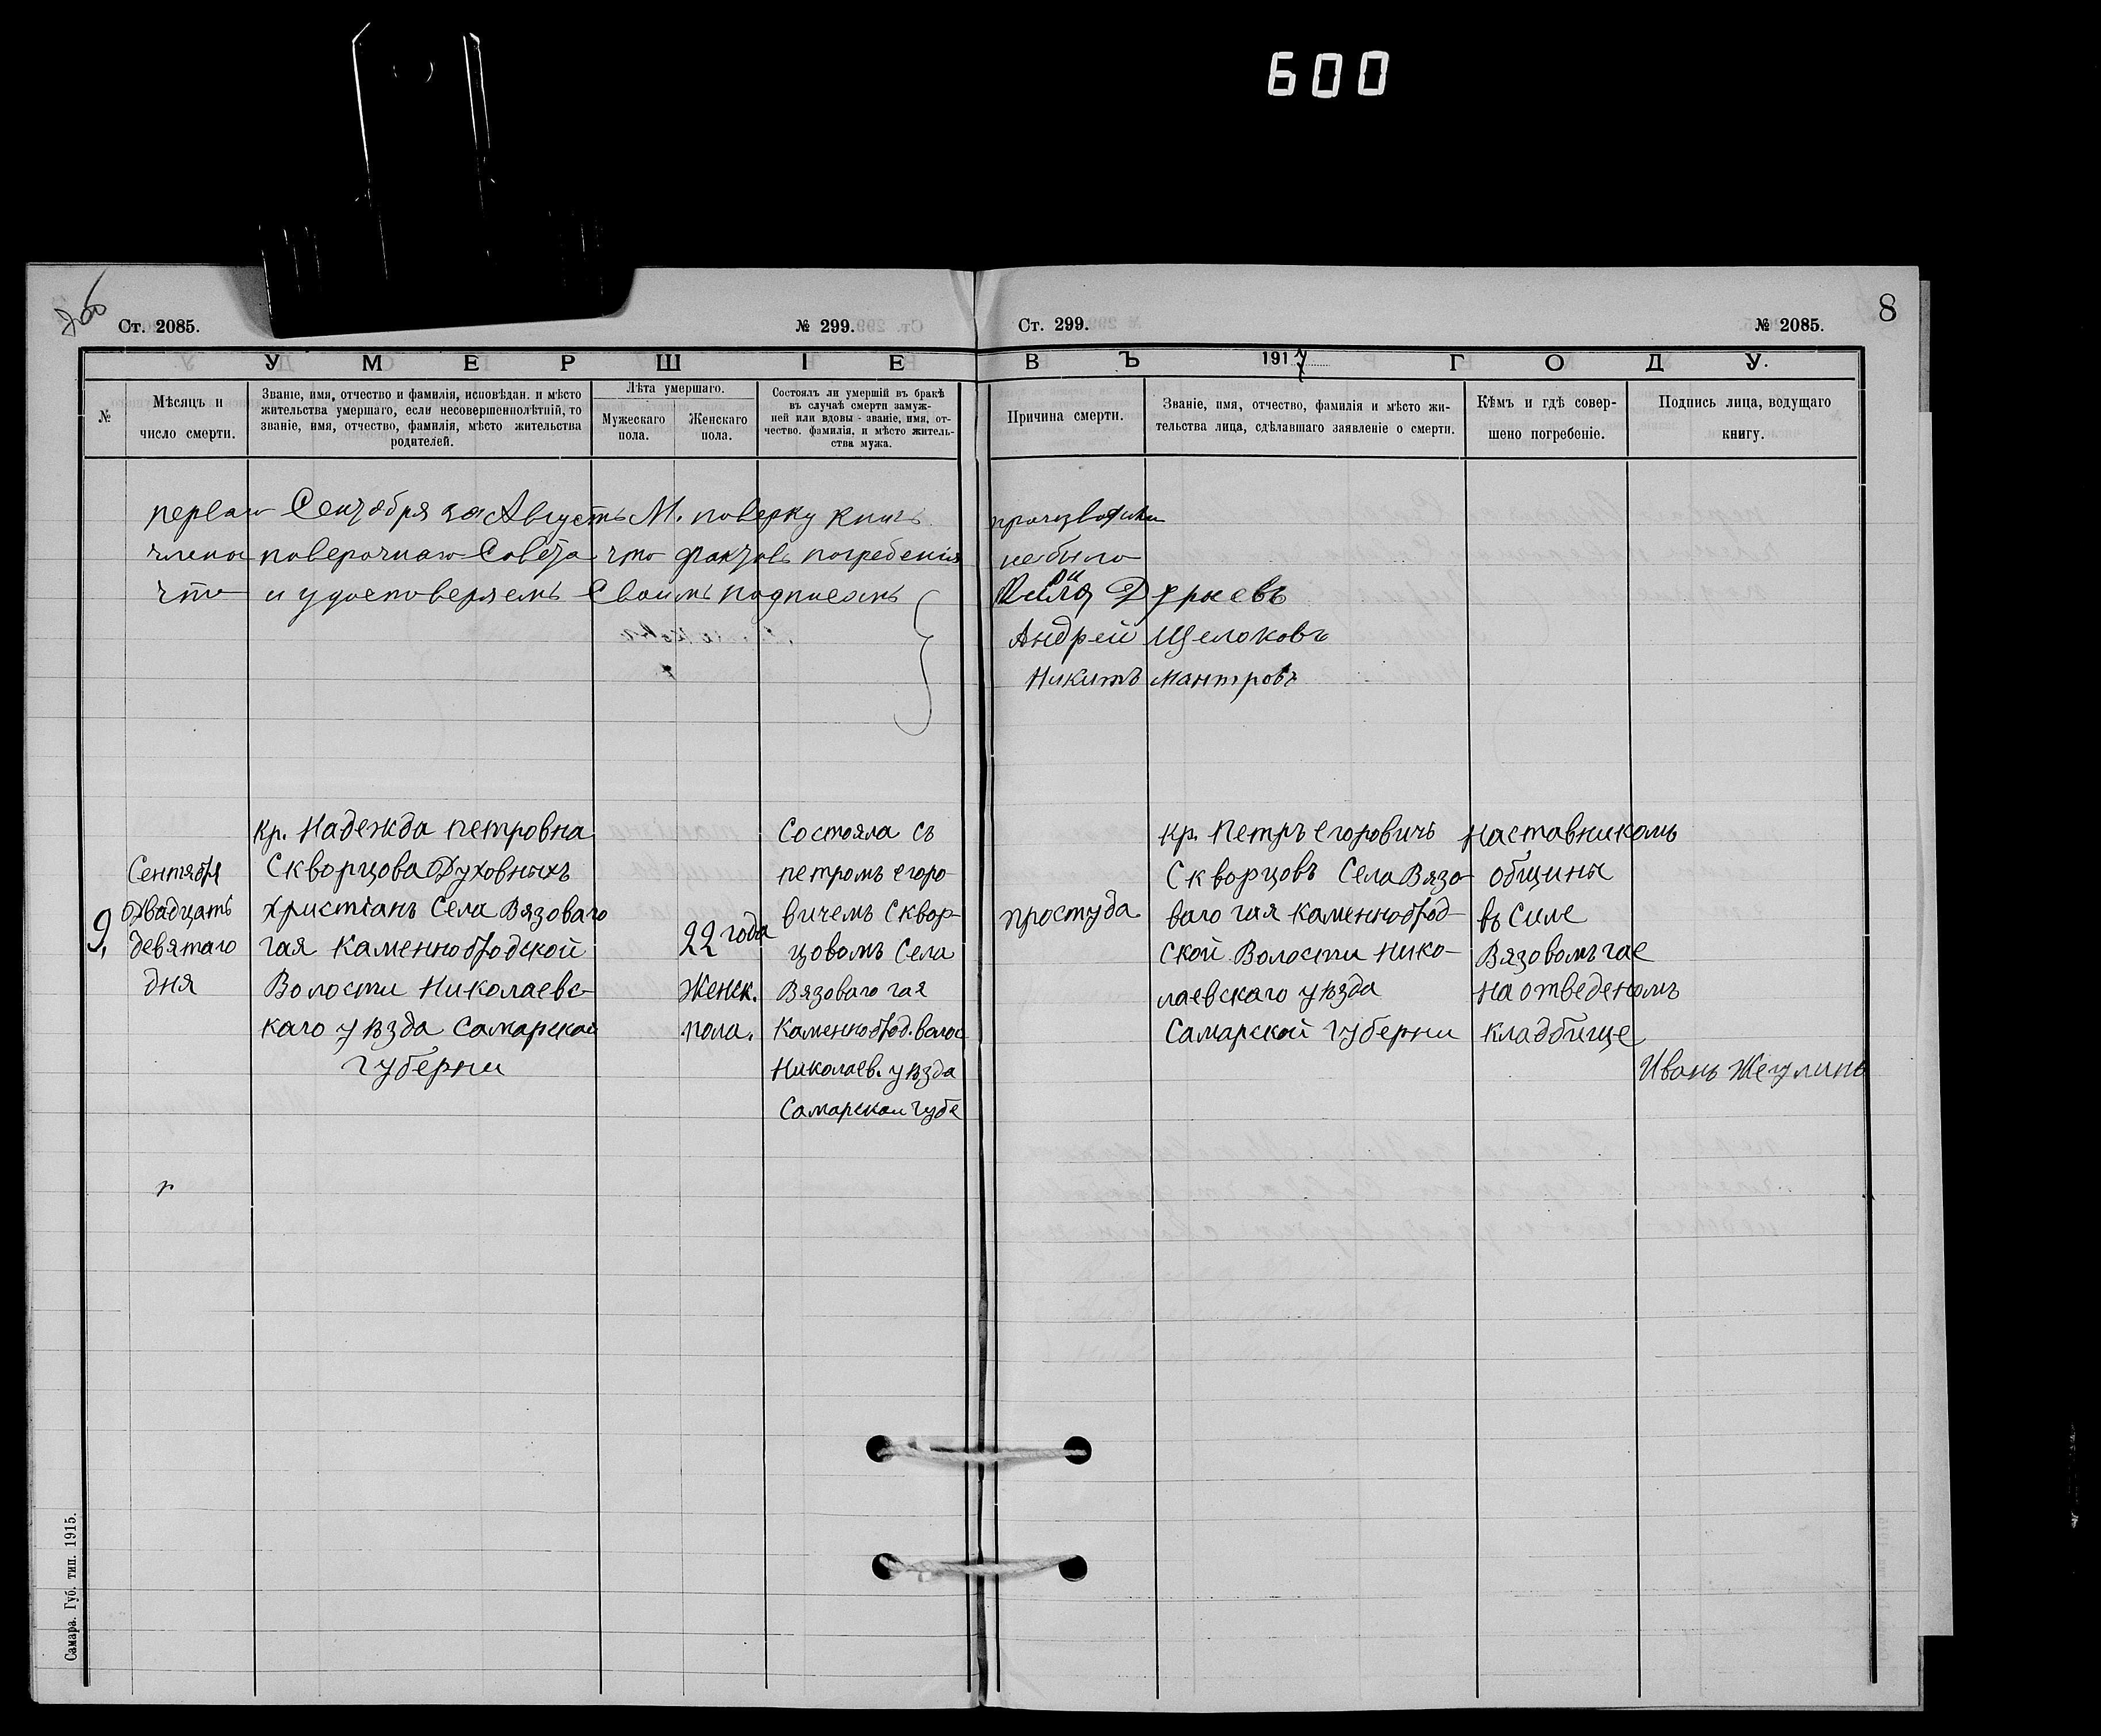 600
8
Ст. 2085. № 299.
Ст. 299. № 2085.
УМЕРШІЕ
ВЪ 1917 ГОДУ.
№
Мѣсяцъ и
число смерти.
Званіе, имя, отчество и фамилія, исповѣдан. и мѣсто
жительства умершаго, если несовершеннолѣтній, то
званіе, имя, отчество, фамилія, мѣсто жительства
родителей.
Лѣта умершаго.
Мужескаго
пола.
Женскаго
пола.
Состоялъ ли умершій въ бракѣ
въ случаѣ смерти замуж-
ней или вдовы - званіе, имя, от-
чество. фамилія, и мѣсто житель-
ства мужа.
Причина смерти.
Званіе, имя, отчество, фамилія и мѣсто жи-
тельства лица, сдѣлавшаго заявленіе о смерти.
Кѣмъ и гдѣ совер-
шено погребеніе.
Подпись лица, ведущаго
книгу.
перваго Сентября за Августъ М. поверку книгъ производили
члены поверочнаго Совета что фактовъ погребения небыло
что и удостоверяемъ Своимъ подписомъ
Дурыевъ
Андрей Щелоковъ
Никитъ Мантровъ
9,
Сентября
Двадцать
девятаго
дня
Кр. Надежда петровна
Скворцова Духовныхъ
христіанъ Села Вязоваго
гая Каменнобродской
Волости Николаевс-
каго уѣзда Самарской
губерни
22 года
Женск.
пола.
Состояла съ
петромъ егоро-
вичемъ Сквор-
цовомъ Села
Вязоваго гая
Каменноброд. волос
Николаев. уѣзда
Самарской губе
простуда
Кр. Петръ егоровичъ
Скворцовъ Села Вязо-
ваго гая Каменноброд-
ской Волости Нико-
лаевскаго уѣзда
Самарской губерни
Наставникомъ
общины
въ Силе
Вязовомъ гае
на отведеномъ
кладбище
Иванъ Жегулинъ
Самара. Губ. тип. 1915.